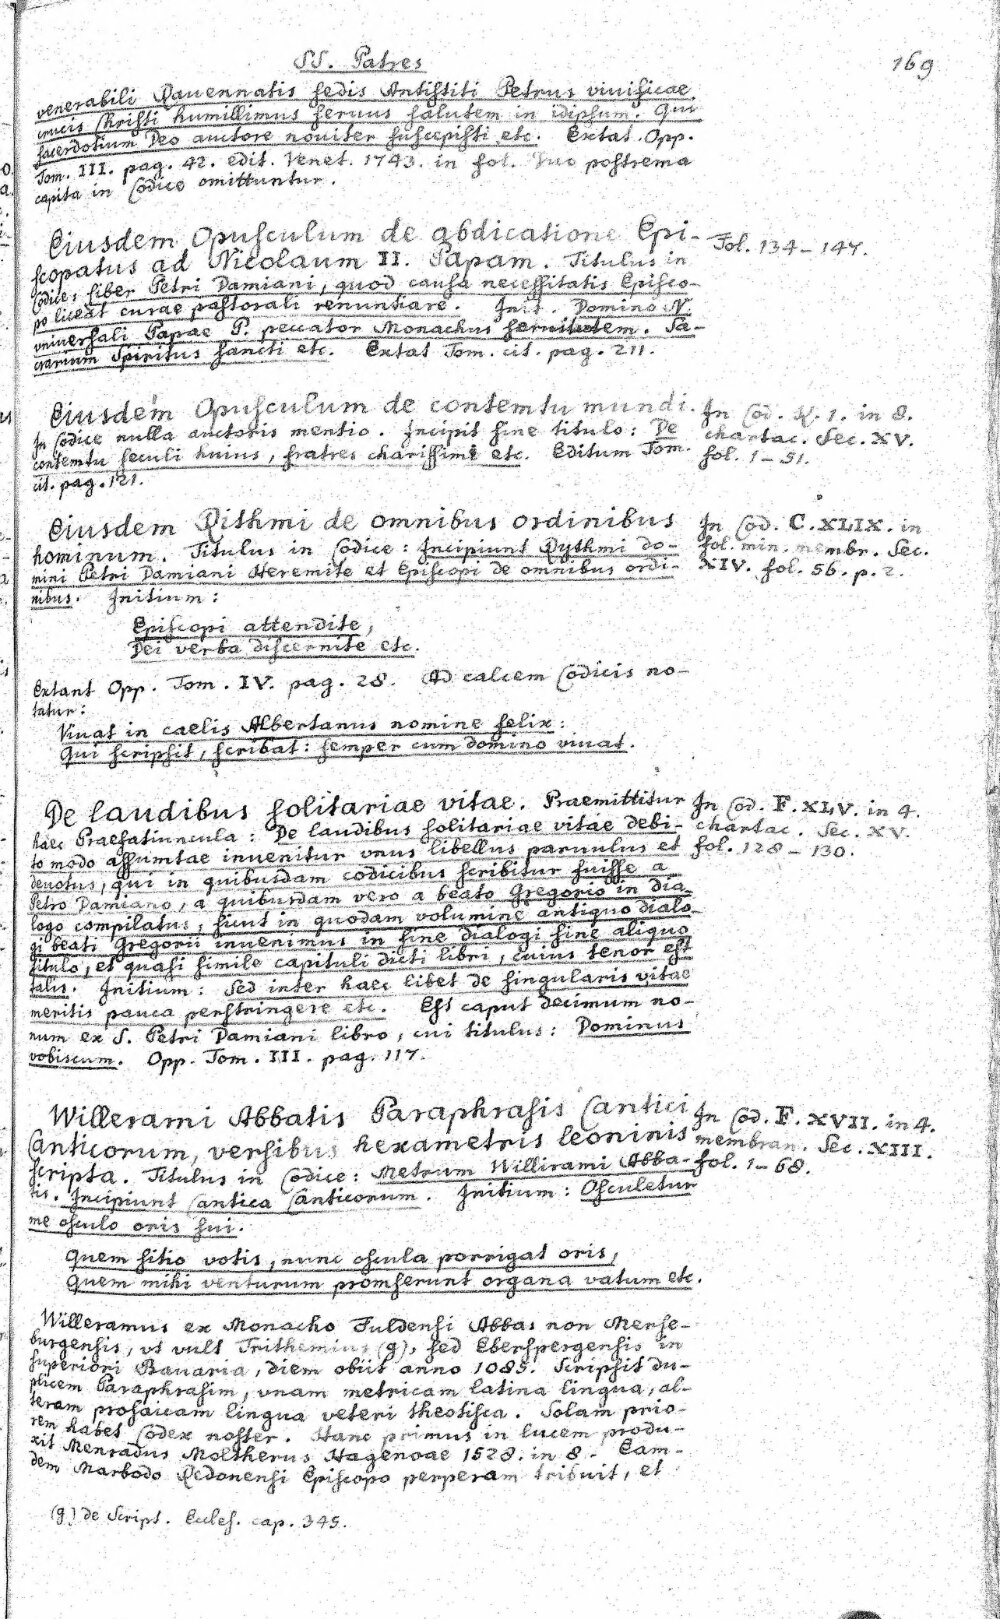 SS. Patres
169
venerabili Ravennatis sedis Antistiti Petrus vivificae
crucis Christi humillimus servus salutem in idipsum. Qui
sacerdotium Deo auctore noviter suscepisti etc. Extat Opp.
Tom. III. pag. 42. edit. Venet. 1743. in fol. Duo postrema
capita in Codice omittuntur.
Eiusdem Opusculum de abdicatione Epi-
scopatus ad Nicolaum II. Papam. Titulus in
Codice: Liber Petri Damiani, quod causa necessitatis Episco-
po liceat curae pastorali renuntiare. Init. Domino N.
universali Papae P. peccator Monachus servitutem. Sa-
crarium Spiritus sancti etc. Extat Tom. cit. pag. 211.
Fol. 134-147.
Eiusdem Opusculum de contemtu mundi.
In Codice nulla auctoris mentio. Incipit sine titulo: De
contemtu seculi huius, fratres charissimi etc. Editum Tom.
cit. pag. 121.
In Cod. 1. in 8.
chartac. Sec. XV.
fol. 1-51.
Eiusdem Rithmi de omnibus ordinibus
hominum. Titulus in Codice: Incipiunt Rythmi do-
mini Petri Damiani Heremite et Episcopi de omnibus ordi-
nibus. Initium:
Episcopi attendite,
Dei verba discernite etc.
Extant Opp. Tom. IV. pag. 28. Ad calcem Codicis no-
tatur:
Vivat in caelis Albertanus nomine felix:
Qui scripsit, scribat: semper cum domino vivat.
In Cod. C. XLIX. in
fol. min. membr. Sec.
XIV. fol. 56. p. 2.
De laudibus solitariae vitae. Praemittitur
haec Praefatiuncula: De laudibus solitariae vitae debi-
to modo assumtae invenitur vnus libellus parvulus et
devotus, qui in quibusdam codicibus scribitur fuisse a
Petro Damiano, a quibusdam vero a beato Gregorio in dia-
logo compilatus, sicut in quodam volumine antiquo dialo-
gi beati Gregorii invenimus in fine dialogi sine aliquo
titulo, et quasi simile capituli dicti libri, cuius tenor est
talis. Initium: Sed inter haec libet de singularis vitae
meritis pauca perstringere etc. Est caput decimum no-
num ex S. Petri Damiani libro, cui titulus: Dominus
vobiscum. Opp. Tom. III. pag. 117.
In Cod. F. XLV. in 4.
chartac. Sec. XV.
fol. 128-130.
Willerami Abbatis Paraphrasis Cantici
Canticorum, versibus hexametris leoninis
scripta. Titulus in Codice: Metrum Willirami Abba-
tis. Incipiunt Cantica Canticorum. Initium: Osculetur
me osculo oris sui.
Quem sitio votis, nunc oscula porrigat oris,
Quem mihi venturum promserunt organa vatum etc.
In Cod. F. XVII. in 4.
membran. Sec. XIII.
fol. 1-68.
Willeramus ex Monacho Fuldensi Abbas non Merse-
burgensis, vt vult Trithemius (g), sed Eberspergensis in
superiori Bavaria, diem obiit anno 1085. Scripsit du-
plicem Paraphrasim, vnam metricam latina lingua, al-
teram prosaicam lingua veteri theotisca. Solam prio-
rem habet Codex noster. Hanc primus in lucem produ-
xit Menradus Moltherus Hagenoae 1528. in 8. Eam-
dem Marbodo Redonensi Episcopo perperam tribuit, et
(g) de Script. Eccles. cap. 345.